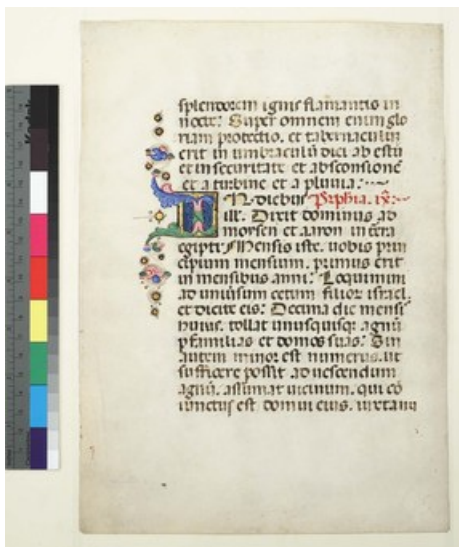 splendorem ignis flamantis in
nocte: Super omnem enim glo
riam protectio, et tabernaculum
erit in umbraculũ diei ab estu
et in securitate et absconsionẽ
et a turbine et a pluvia:
In diebus Prphia. ix:
illis. Dixit dominus ad
moysen et aaron in terra
egipti: Mensis iste. vobis prin
cipium mensium. primus erit
in mensibus anni: Loquimini
ad universum cetum filior israel.
et dicite eis: Decima die mensi
huius. tollat unusquisq agnũ
p familias et domos suas: Sin
autem minor est numerus. ut
sufficere possit ad vescendum
agnũ. assumat vicinum. qui cõ
iunctus est domui eius. iuxta nu